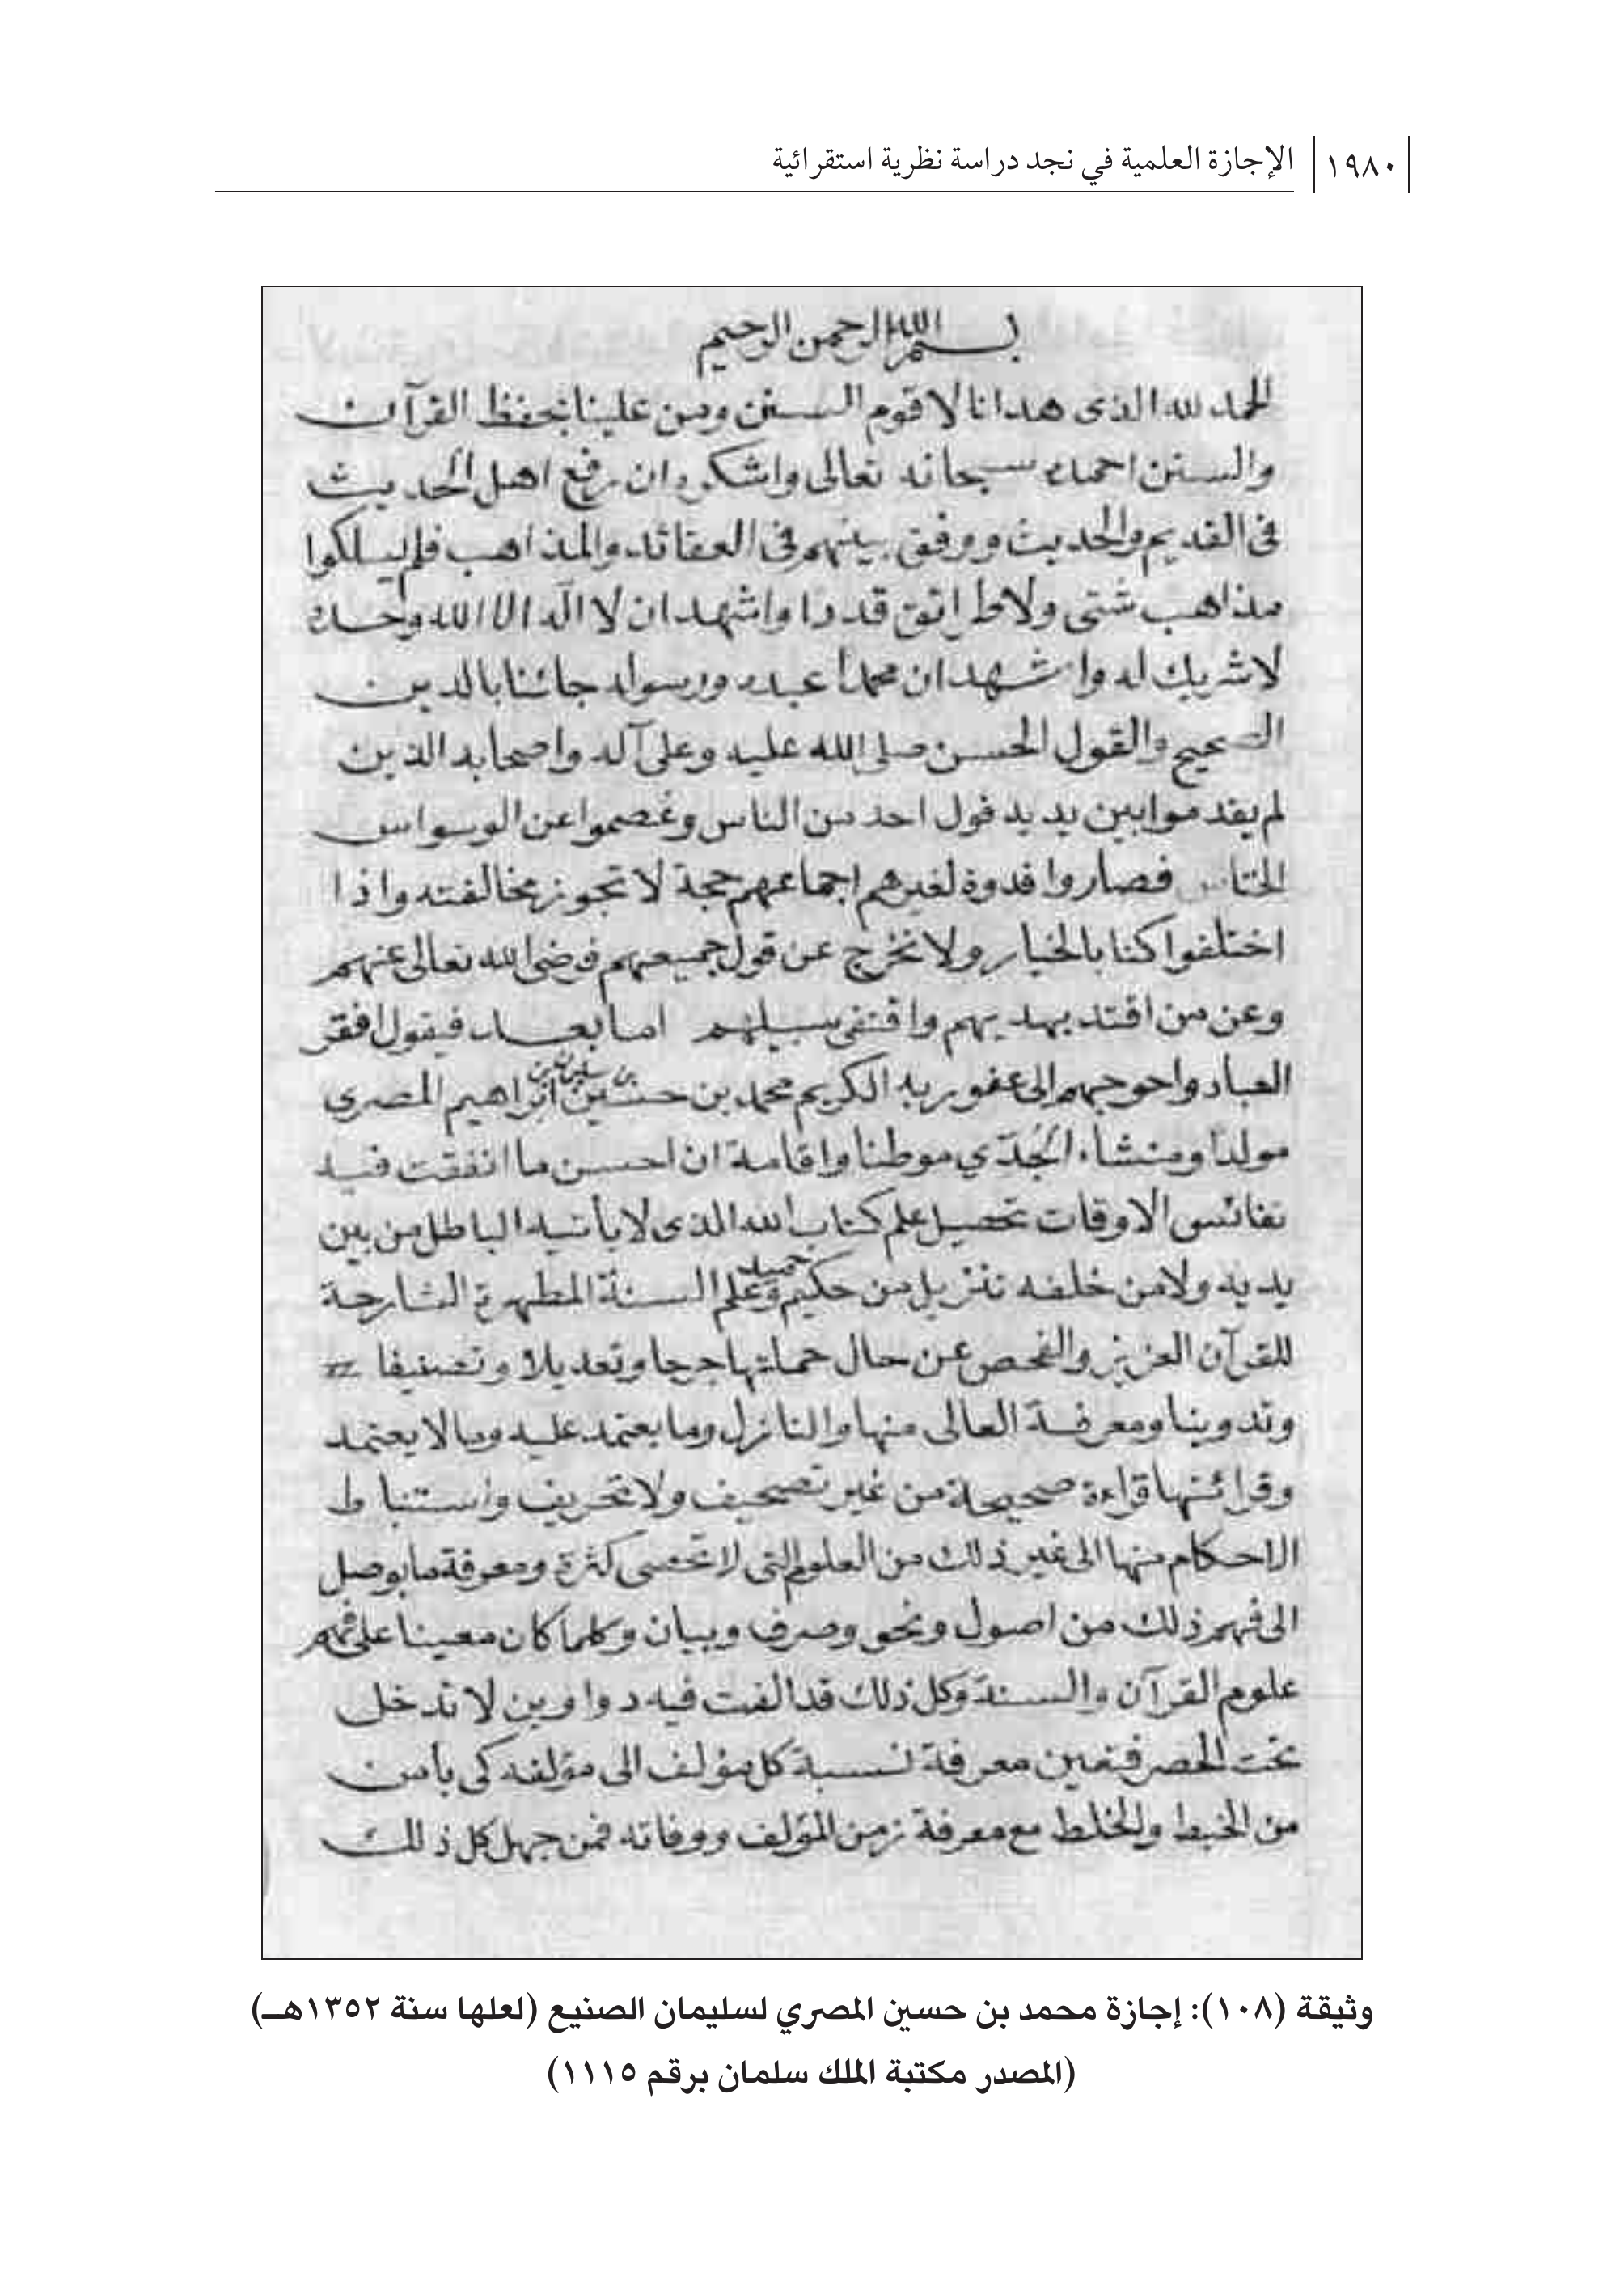 ١٩٨٠ الإجازة العلمية في نجد دراسة نظرية استقرائية
بسم الله الرحمن الرحيم
الحمد لله الذى هدانا لاقوم السنن ومن علينا بحفظ القرآن
والسنن احمده سبحانه تعالى واشكره ان رفع اهل الحديث
فى القديم والحديث ووفق بينهم فى العقائد والمذاهب فلم يسلكوا
مذاهب شتى ولا طرائق قددا واشهد ان لا اله الا الله وحده
لا شريك له واشهد ان محمدا عبده ورسوله جائنا بالدين
الصحيح والقول الحسن صلى الله عليه وعلى آله واصحابه الذين
لم يقدموا بين يديه قول احد من الناس وعصموا عن الوسواس
الخناس فصاروا قدوة لغيرهم اجماعهم حجة لا تجوز مخالفته واذا
اختلفوا كنا بالخيار ولا نخرج عن قول جميعهم فرضى الله تعالى عنهم
وعن من اقتد بهديهم واقتفى سبيلهم اما بعد فيقول افقر
العباد واحوجهم الى عفو ربه الكريم محمد بن حسين بن سليمان بن ابراهيم المصرى
مولدا ومنشاء الجُدّي موطنا واقامة ان احسن ما انفقت فيه
نفائس الاوقات تحصيل علم كتاب الله الذى لا يأتيه الباطل من بين
يديه ولا من خلفه تنزيل من حكيم حميد وعلم السنة المطهرة الشارحة
للقرآن العزيز والفحص عن حال حملتها جرحا وتعديلا وتصنيفا
وتدوينا ومعرفة العالى منها والنازل وما يعتمد عليه وما لا يعتمد
وقرائتها قراءة صحيحة من غير تصحيف ولا تحريف واستنباط
الاحكام منها الى غير ذلك من العلوم التى لا تحصى كثرة ومعرفة ما يوصل
الى فهم ذلك من اصول ونحو وصرف وبيان وكلما كان معينا على فهم
علوم القرآن والسنة وكل ذلك قد الفت فيه دواوين لا تدخل
تحت الحصر فتعين معرفة نسبة كل مؤلف الى مؤلفه كى يأمن
من الخبط والخلط مع معرفة زمن المؤلف ووفاته فمن جهل كل ذلك
وثيقة (١٠٨): إجازة محمد بن حسين المصري لسليمان الصنيع (لعلها سنة ١٣٥٢هـ)
(المصدر مكتبة الملك سلمان برقم ١١١٥)